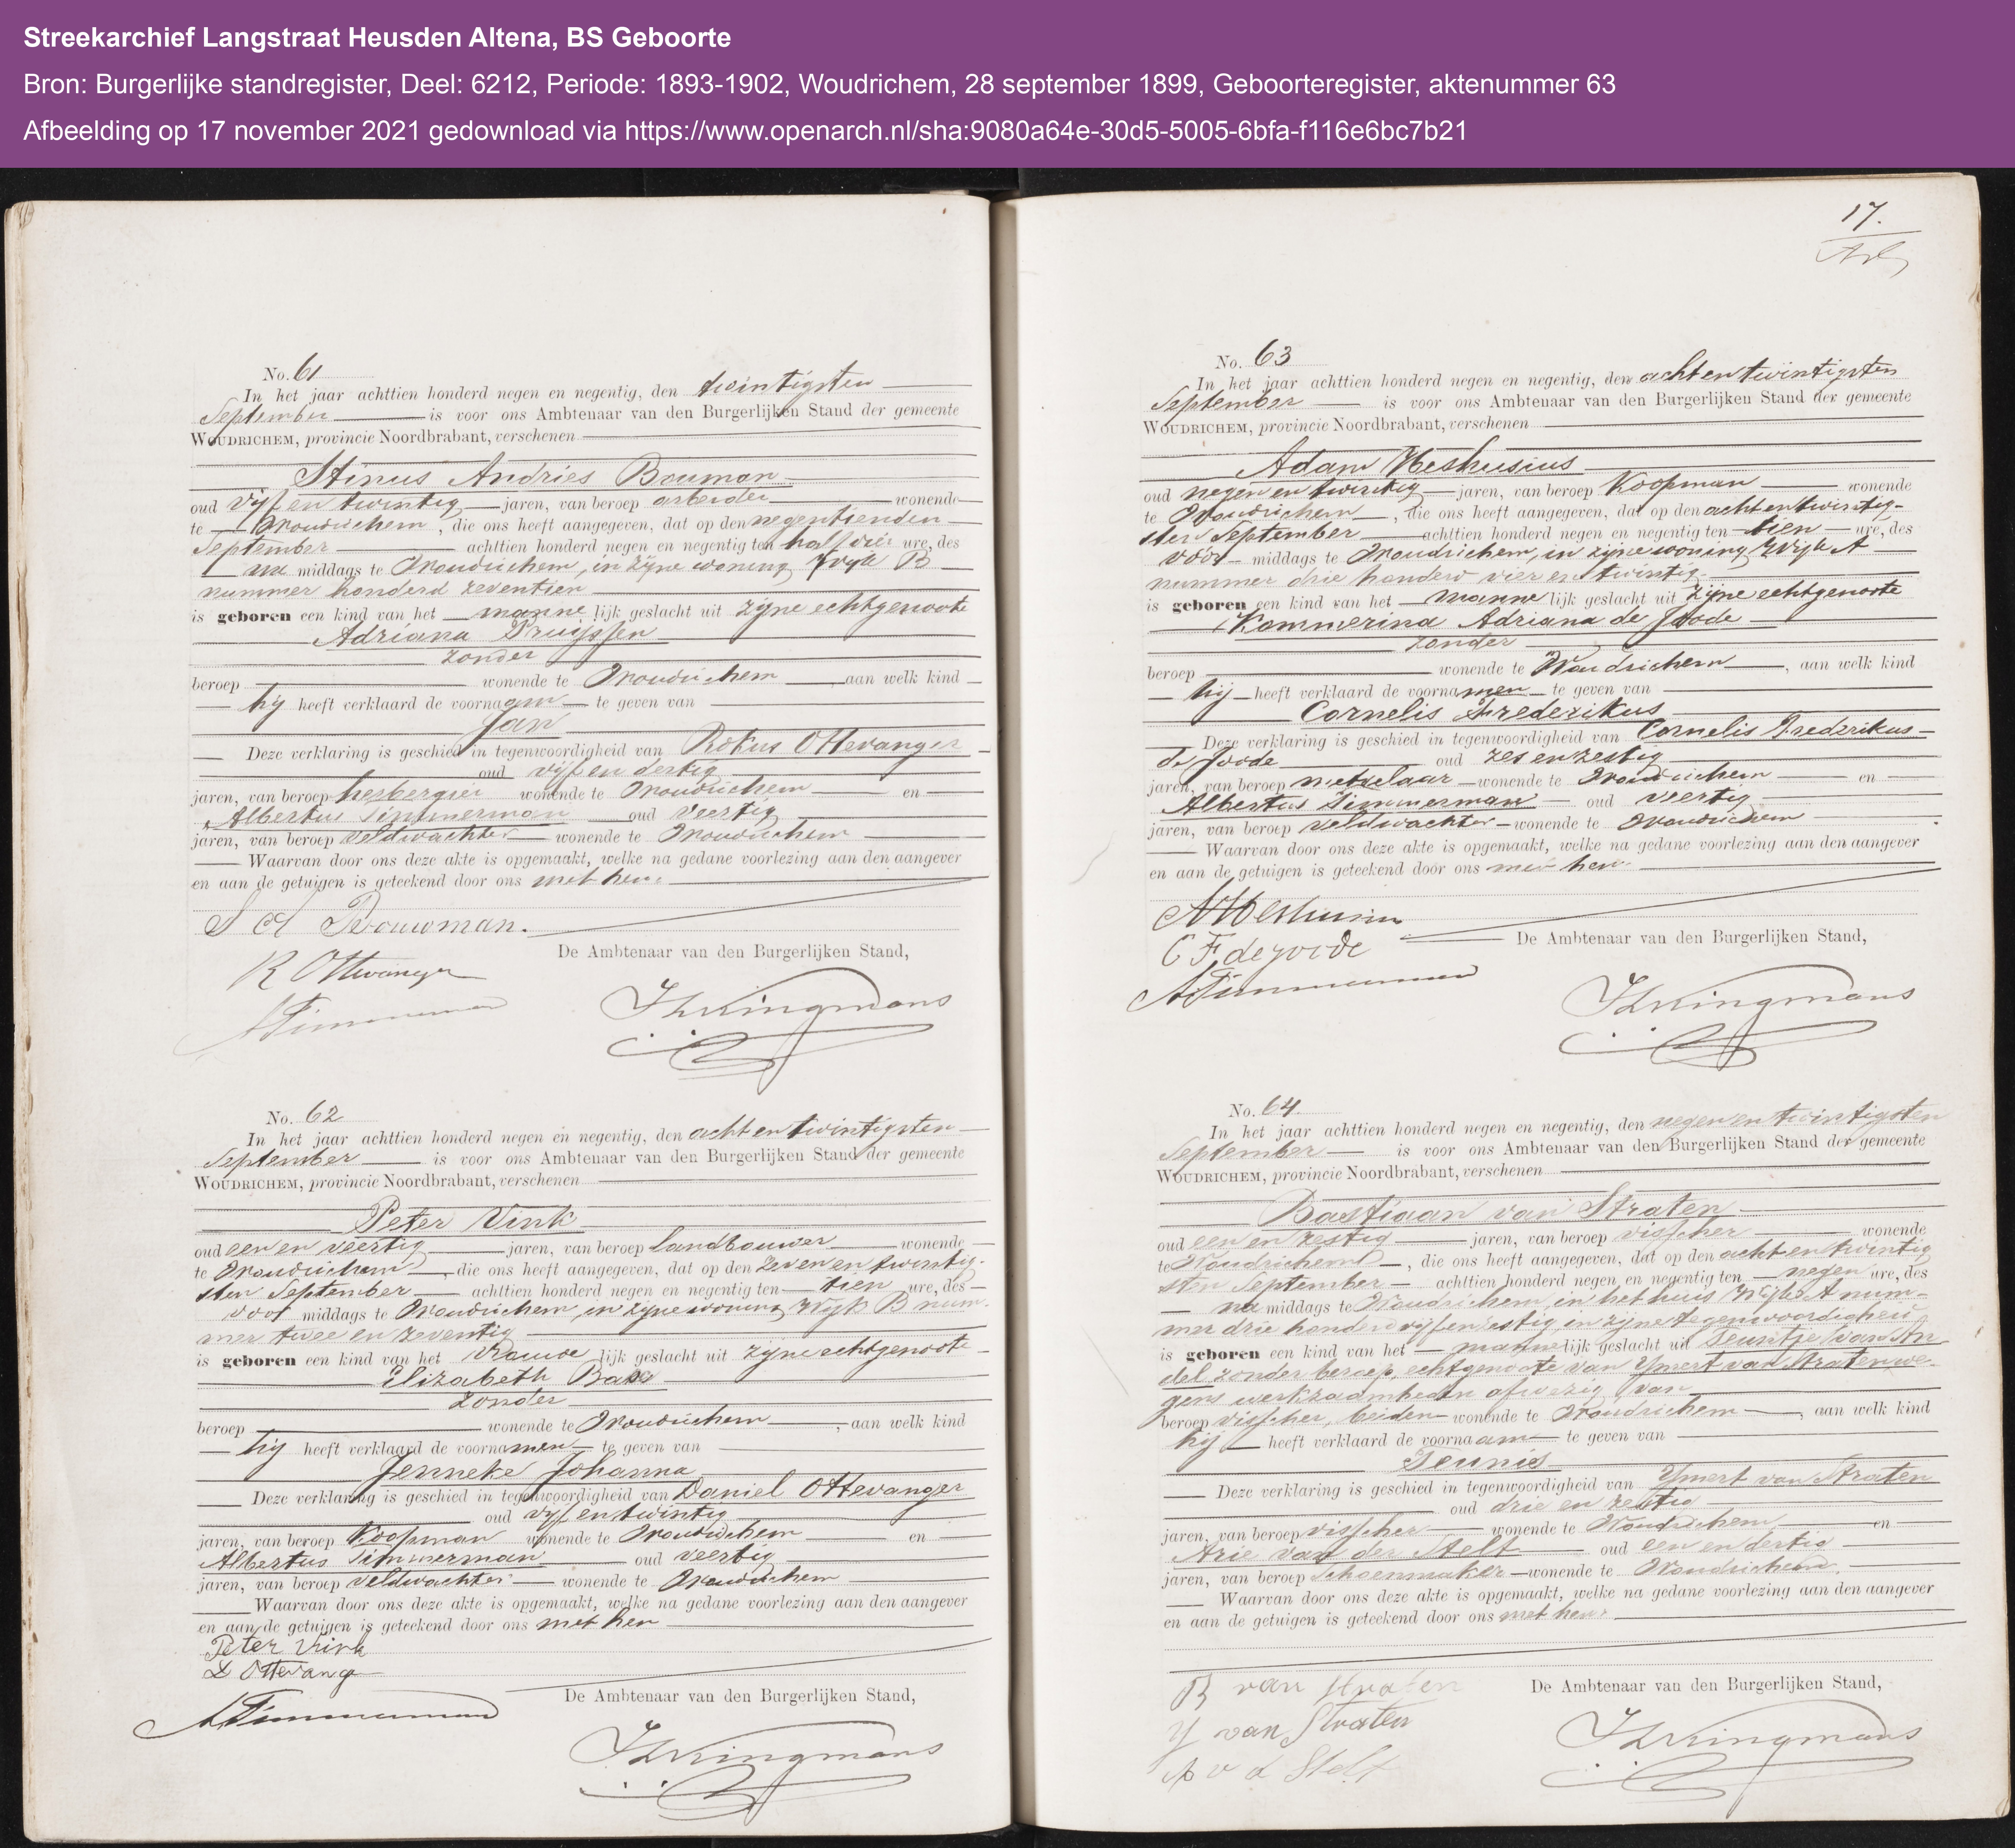 Streekarchief Langstraat Heusden Altena, BS Geboorte
Bron: Burgerlijke standregister, Deel: 6212, Periode: 1893-1902, Woudrichem, 28 september 1899, Geboorteregister, aktenummer 63
Afbeelding op 17 november 2021 gedownload via https://www.openarch.nl/sha:9080a64e-30d5-5005-6bfa-f116e6bc7b21
No. 61
In het jaar achttien honderd negen en negentig, den twintigsten
September is voor ons Ambtenaar van den Burgerlijken Stand der gemeente
WOUDRICHEM, provincie Noordbrabant, verschenen
Stinus Andries Bouman
oud vijf en twintig jaren, van beroep arbeider wonende
te Woudrichem, die ons heeft aangegeven, dat op den negentienden
September achttien honderd negen en negentig ten half vier ure, des
na middags te Woudrichem, in zijne woning Wijk B
nummer honderd zeventien
is geboren een kind van het mannelijk geslacht uit zijne echtgenoote
Adriana Pruijssen
zonder
beroep wonende te Woudrichem aan welk kind
hij heeft verklaard de voornaam te geven van
Jan
Deze verklaring is geschied in tegenwoordigheid van Rokus Ottevanger
oud vijf en dertig
jaren, van beroep herbergier wonende te Woudrichem en
Albertus Timmerman oud veertig
jaren, van beroep veldwachter wonende te Woudrichem
Waarvan door ons deze akte is opgemaakt, welke na gedane voorlezing aan den aangever
en aan de getuigen is geteekend door ons met hen.
S A Bouwman.
R Ottevanger
De Ambtenaar van den Burgerlijken Stand,
A Timmerman
Kingmans
No. 62
In het jaar achttien honderd negen en negentig, den acht en twintigsten
September is voor ons Ambtenaar van den Burgerlijken Stand der gemeente
WOUDRICHEM, provincie Noordbrabant, verschenen
Peter Vink
oud een en veertig jaren, van beroep landbouwer wonende
te Woudrichem, die ons heeft aangegeven, dat op den zeven en twintig-
sten September achttien honderd negen en negentig ten tien ure, des
voor middags te Woudrichem, in zijne woning Wijk B num-
mer twee en zeventig
is geboren een kind van het vrouwelijk geslacht uit zijne echtgenoote
Elizabeth
zonder
beroep wonende te Woudrichem, aan welk kind
hij heeft verklaard de voornamen te geven van
Jenneke Johanna
Deze verklaring is geschied in tegenwoordigheid van Daniel Ottevanger
oud vijf en twintig
jaren, van beroep Koopman wonende te Woudrichem en
Albertus Timmerman oud veertig
jaren, van beroep veldwachter wonende te Woudrichem
Waarvan door ons deze akte is opgemaakt, welke na gedane voorlezing aan den aangever
en aan de getuigen is geteekend door ons met hen
Peter Vink
D Ottevang
De Ambtenaar van den Burgerlijken Stand,
A Timmerman
Kingmans
17.
No. 63
In het jaar achttien honderd negen en negentig, den acht en twintigsten
September is voor ons Ambtenaar van den Burgerlijken Stand der gemeente
WOUDRICHEM, provincie Noordbrabant, verschenen
Adam Heshusius
oud negen en twintig jaren, van beroep Koopman wonende
te Woudrichem, die ons heeft aangegeven, dat op den acht en twintig-
sten September achttien honderd negen en negentig ten tien ure, des
voor middags te Woudrichem, in zijne woning Wijk A
nummer drie honderd vier en twintig
is geboren een kind van het mannelijk geslacht uit zijne echtgenoote
Kommerina Adriana de Joode
zonder
beroep wonende te Woudrichem, aan welk kind
hij heeft verklaard de voornamen te geven van
Cornelis Frederikus
Deze verklaring is geschied in tegenwoordigheid van Cornelis Frederikus
de Joode oud zes en zestig
jaren, van beroep metselaar wonende te Woudrichem en
Albertus Timmerman oud veertig
jaren, van beroep veldwachter wonende te Woudrichem
Waarvan door ons deze akte is opgemaakt, welke na gedane voorlezing aan den aangever
en aan de getuigen is geteekend door ons met hen
A Heshusius
C F de joode
De Ambtenaar van den Burgerlijken Stand,
A Timmerman
Kingmans
No. 64
In het jaar achttien honderd negen en negentig, den negen en twintigsten
September is voor ons Ambtenaar van den Burgerlijken Stand der gemeente
WOUDRICHEM, provincie Noordbrabant, verschenen
Bastiaan van Straten
oud een en zestig jaren, van beroep visscher wonende
te Woudrichem, die ons heeft aangegeven, dat op den acht en twintig
sten September achttien honderd negen en negentig ten negen ure, des
na middags te Woudrichem, in het huis Wijk A num-
mer drie honderd vijf en zestig, in zijne tegenwoordigheid
is geboren een kind van het mannelijk geslacht uit Teuntje van An-
del zonder beroep, echtgenoote van Ymert van Straten we-
gens werkzaamheden afwezig, van
beroep visscher, beiden wonende te Woudrichem, aan welk kind
hij heeft verklaard de voornaam te geven van
Teunis
Deze verklaring is geschied in tegenwoordigheid van Ymert van Straten
oud drie en zestig
jaren, van beroep visscher wonende te Woudrichem en
Arie van der Stelt oud een en dertig
jaren, van beroep Schoenmaker wonende te Woudrichem.
Waarvan door ons deze akte is opgemaakt, welke na gedane voorlezing aan den aangever
en aan de getuigen is geteekend door ons met hen
B van Straten
De Ambtenaar van den Burgerlijken Stand,
Y van Straten
A v d Stelt
Kingmans